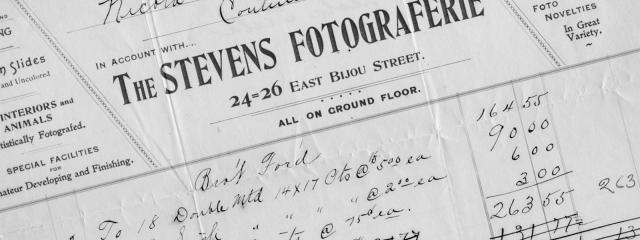 NG
Slides
and Uncolored
INTERIORS and
ANIMALS
tistically Fotografed.
SPECIAL FACILITIES
FOR
nateur Developing and Finishing.
IN ACCOUNT WITH...
THE STEVENS FOTOGRAFERIE
24=26 EAST BIJOU STREET.
ALL ON GROUND FLOOR.
FOTO
NOVELTIES
In Great
Variety.
164 55
Bro't For'd
To 18 Double Mtd 14x17 Cts @ $5.00 ea 90 00
" " @ 2.00 ea 6 00
@ 75¢ ea. 3 00
263 55 263
131 77